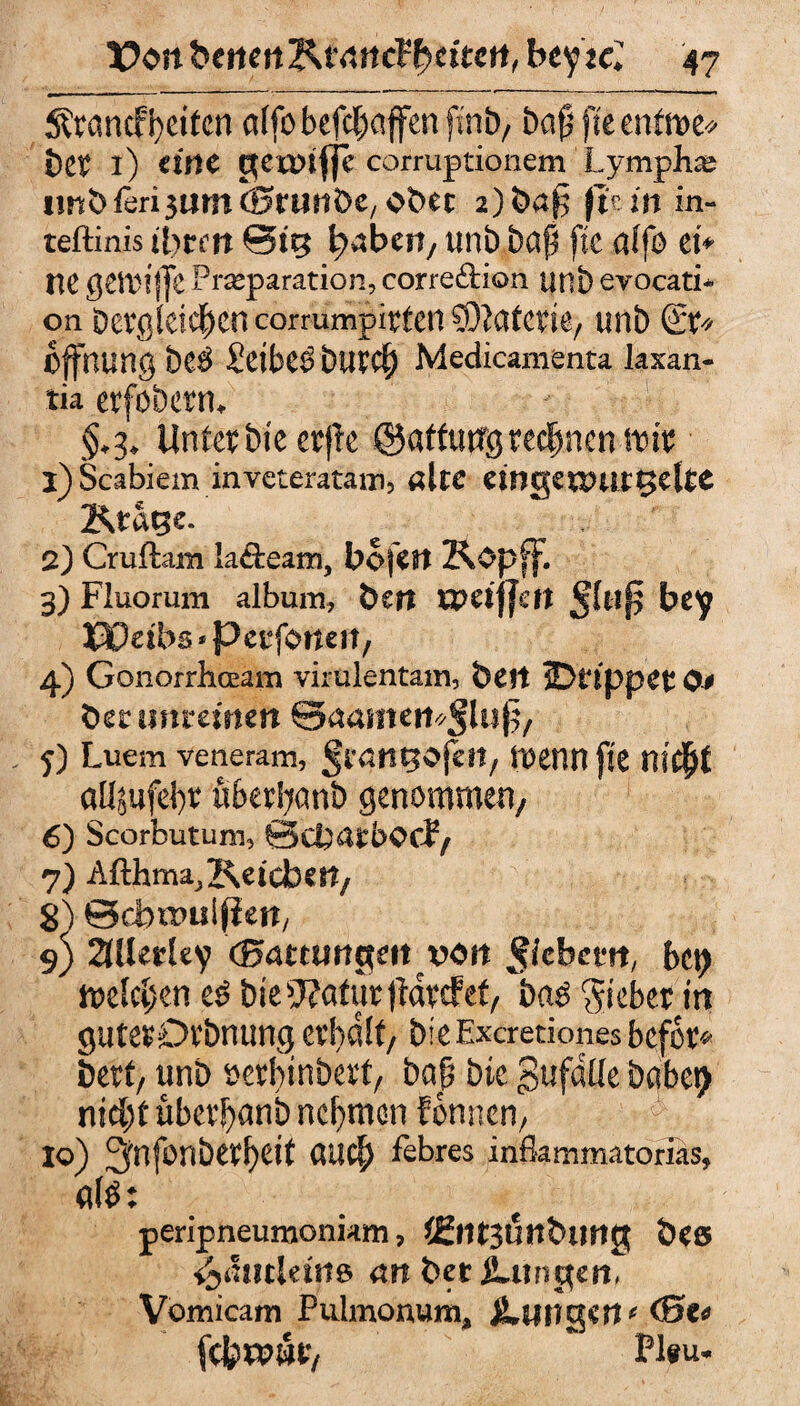 Von denen Kranckheiten, bey ꝛc. 47
Kranckheiten also beschaffen sind, daß sie entwe-
der 1) eine gewisse corruptionem Lymphæ
und seri zum Grunde, oder 2) daß sie in in-
testinis ihren Sitz haben, und daß sie also ei-
ne gewisse Præparation, correction und evocati-
on dergleichen corrumpirten Materie, und Er-
öffnung des Leibes durch Medicamenta laxan-
tia erfodern.
§. 3. Unter die erste Gattung rechnen wir
1) Scabiem inveteratam, alte eingewurtzelte
Krätze.
2) Crustam lacteam, bösen Kopff.
3) Fluorum album, den weissen Fluß bey
Weibs-Personen,
4) Gonorrhœam virulentam, den Dripper o-
der unreinen Saamen-Fluß,
5) Luem veneram, Frantzosen, wenn sie nicht
allzusehr überhand genommen,
6) Scorbutum, Scharbock,
7) Asthma, Keichen,
8) Schwulsten,
9) Allerley Gattungen von Fiebern, bey
welchen es die Natur stärcket, das Fieber in
guter Ordnung erhält, die Excretiones beför-
dert, und verhindert, daß die Zufälle dabey
nicht überhand nehmen können,
10) Insonderheit auch febres inflammatorias,
als:
peripneumoniam, Entzündung des
Häutleins an der Lungen,
Vomicam Pulmonum, Lungen-Ge-
schwür, Pleu-